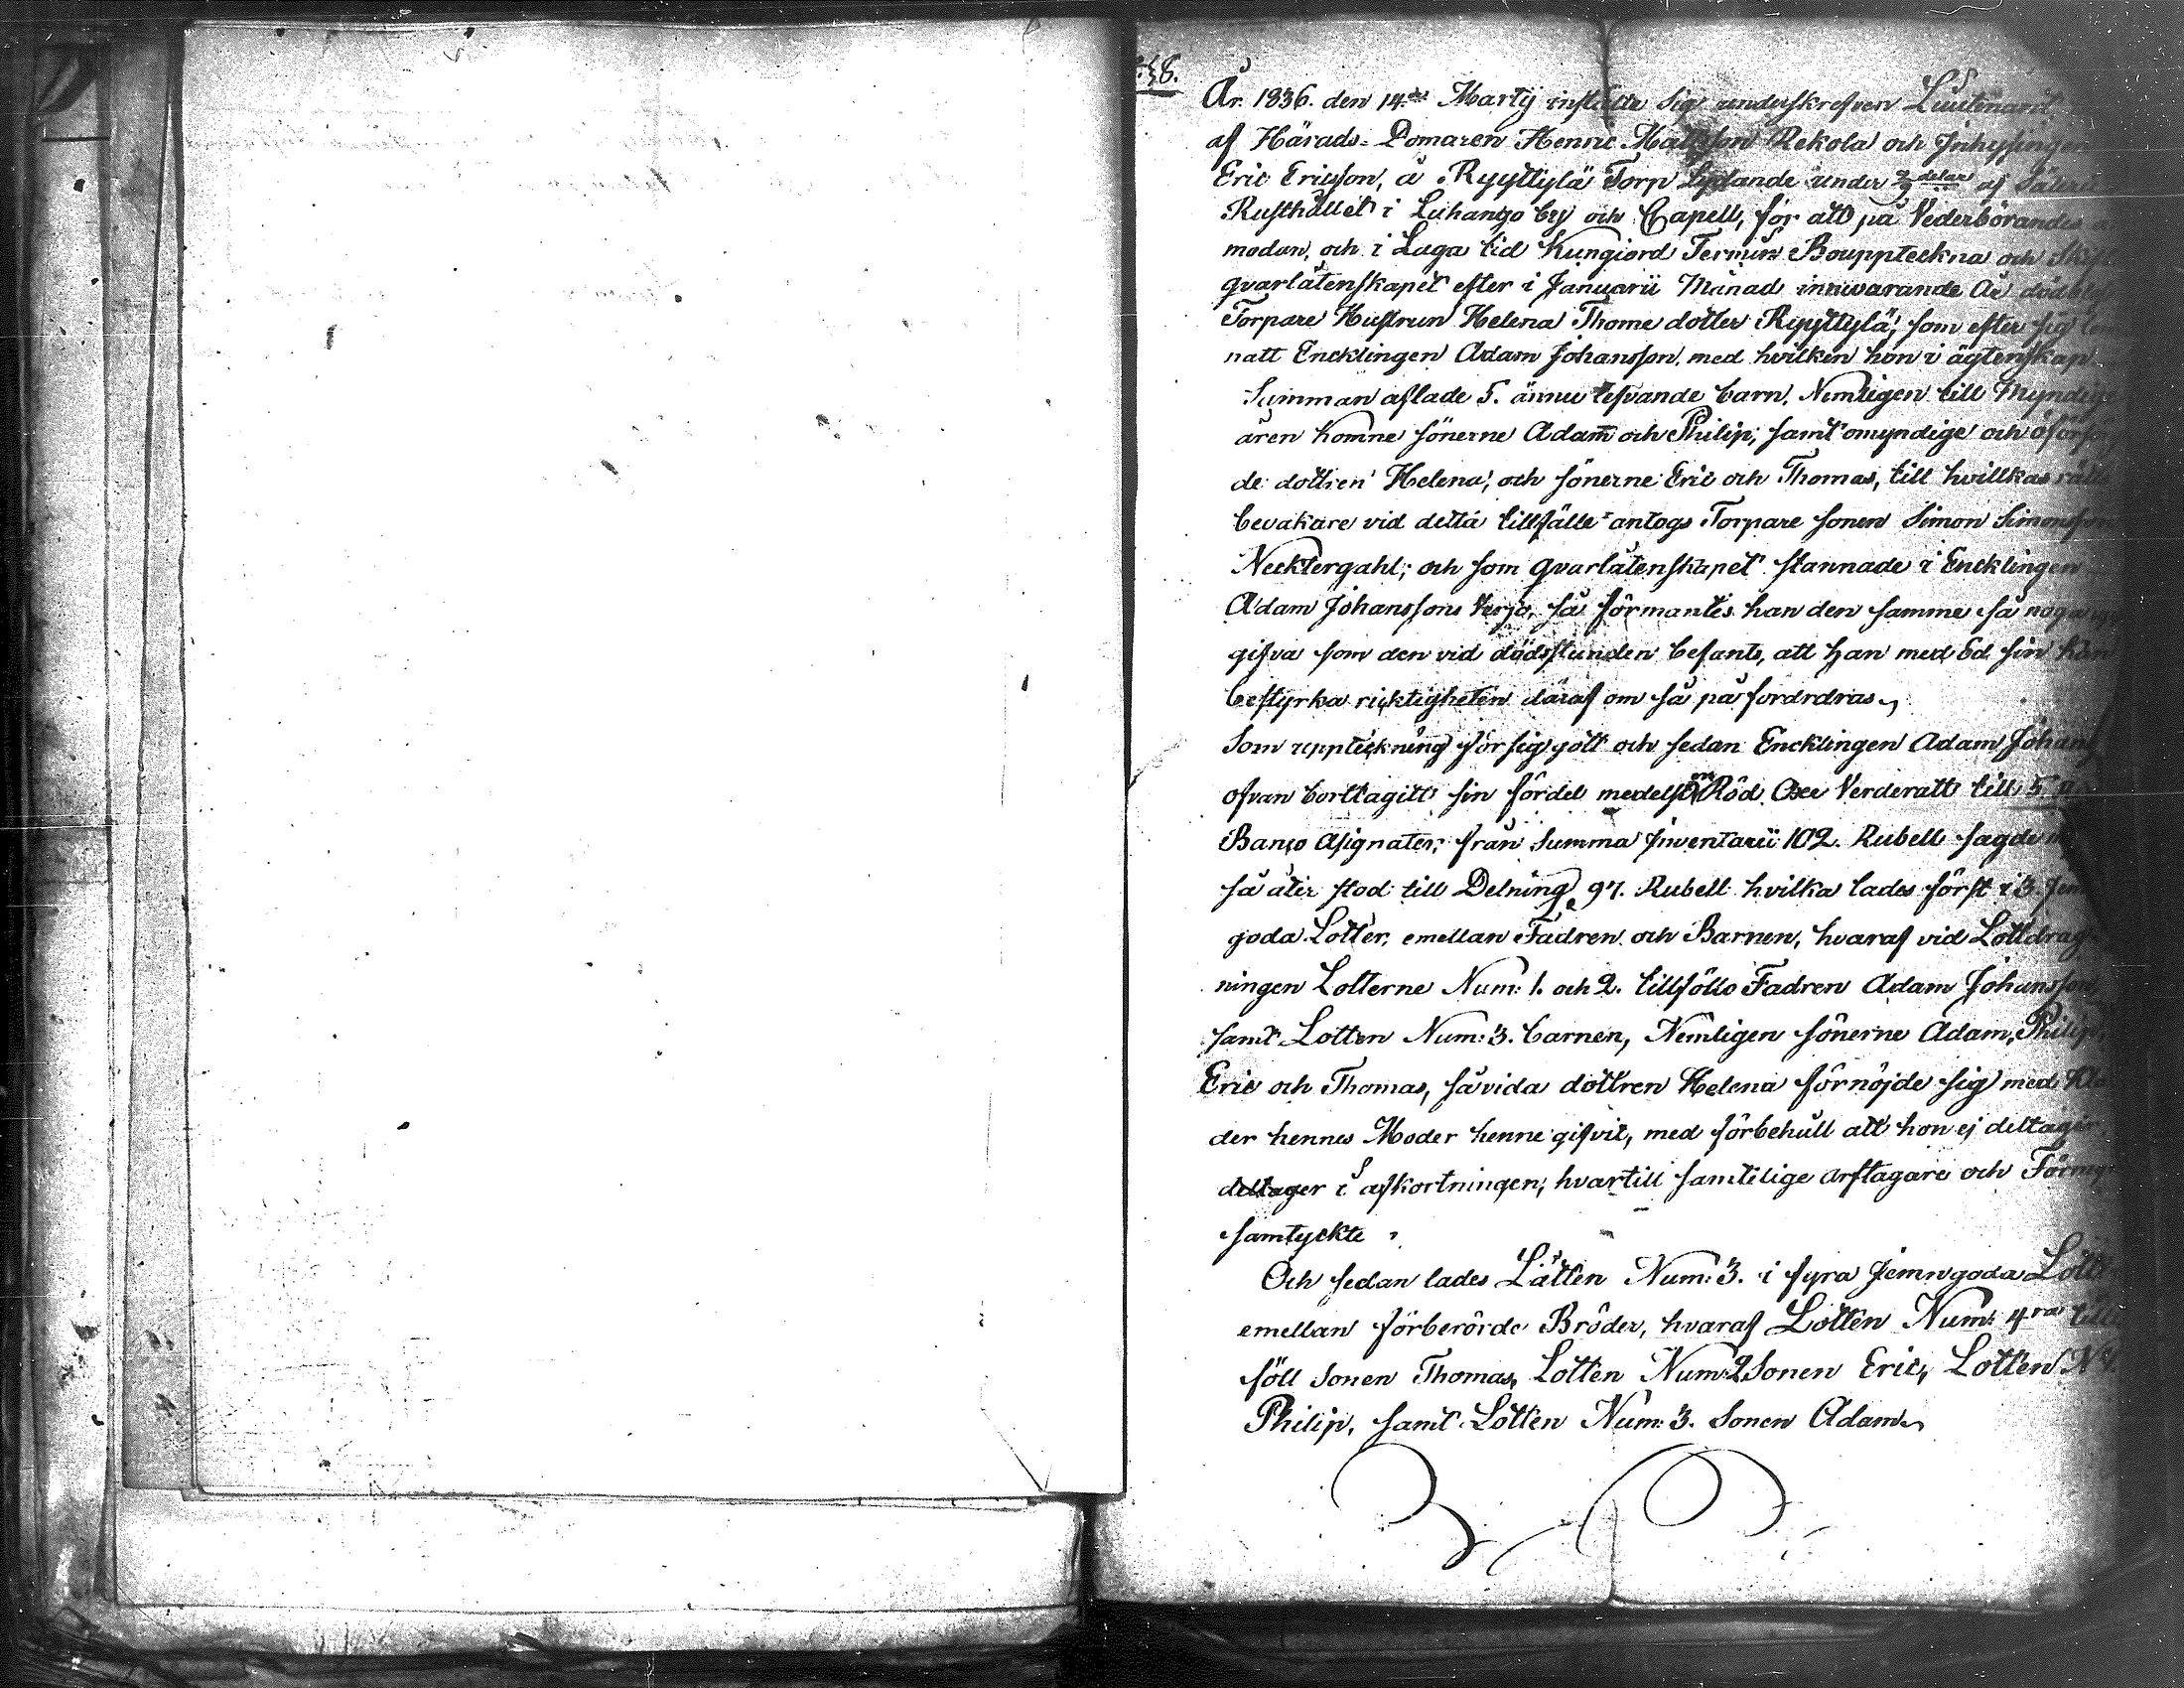 58.
År 1836. den 14.de Martij instälte sig underskrefven Lieutenant
af Härads-Domaren Henric Mattsson Rekola och Inhysingen
Eric Ericsson, å Ryyttylä Torp Lydande under 2/9 delar af
Rusthållet i Luhango by och Capell, för att på Vederbörandes
modan, och i Laga tid Kungiord Termin Bouppteckna och Skifta
qvarlåtenskapet efter i Januarii Månad innevarande År
Torpare Hustrun Helena Thome dotter Ryyttylä, som efter sig
natt Encklingen Adam Johansson, med hvilken hon i ägtenskap
Summan aflade 5. ännu lefvande barn. Nemligen till Myndige
åren komne sönerne Adam och Philip, samt omyndige och oförsörg
de dottren Helena, och sönerne Eric och Thomas, till hvillkas rätts
bevakare vid detta tillfälle antogs Torpare sonen Simon Simonsson
Necktergahl; och som qvarlåtenskapet stannade i Encklingen
Adam Johanssons Verjo, så förmantes han den samme så noga
gifva som den vid dödsstunden befants, att han med Ed sin kan
bestyrka ricktigheten däraf om så på fordrdras
Som uppteckning för sig gått och sedan Encklingen Adam Johans
ofvan borttagitt sin fördel medelst en Röd Oxe Verderatt till 5.
Banco Asignater; från Summa Inventarii 102. Rubell sagde
så åter stod till Delning 97. Rubell hvilka lades först i 3. Jem
goda Lotter, emellan Fadren och Barnen, hvaraf vid Lottdrag
ningen Lotterne Num: 1. och 2. tillföllo Fadren Adam Johansson,
samt Lotten Num: 3. barnen, Nemligen sönerne Adam, Philip,
Eric och Thomas, såvida dottren Helena förnöjde sig med Klä
der hennes Moder henne gifvit, med förbehåll att hon ej deltager
deltager i afkortningen; hvartill samtelige arftagare och Förmy
samtyckte
Och sedan lades Låtten Num: 3. i fyra Jemngoda Lotter
emellan förberörde Bröder, hvaraf Lotten Num: 4ra till
föll Sonen Thomas, Lotten Num: 2 Sonen Eric, Lotten N 1.
Philip, samt Lotten Num: 3. Sonen Adam